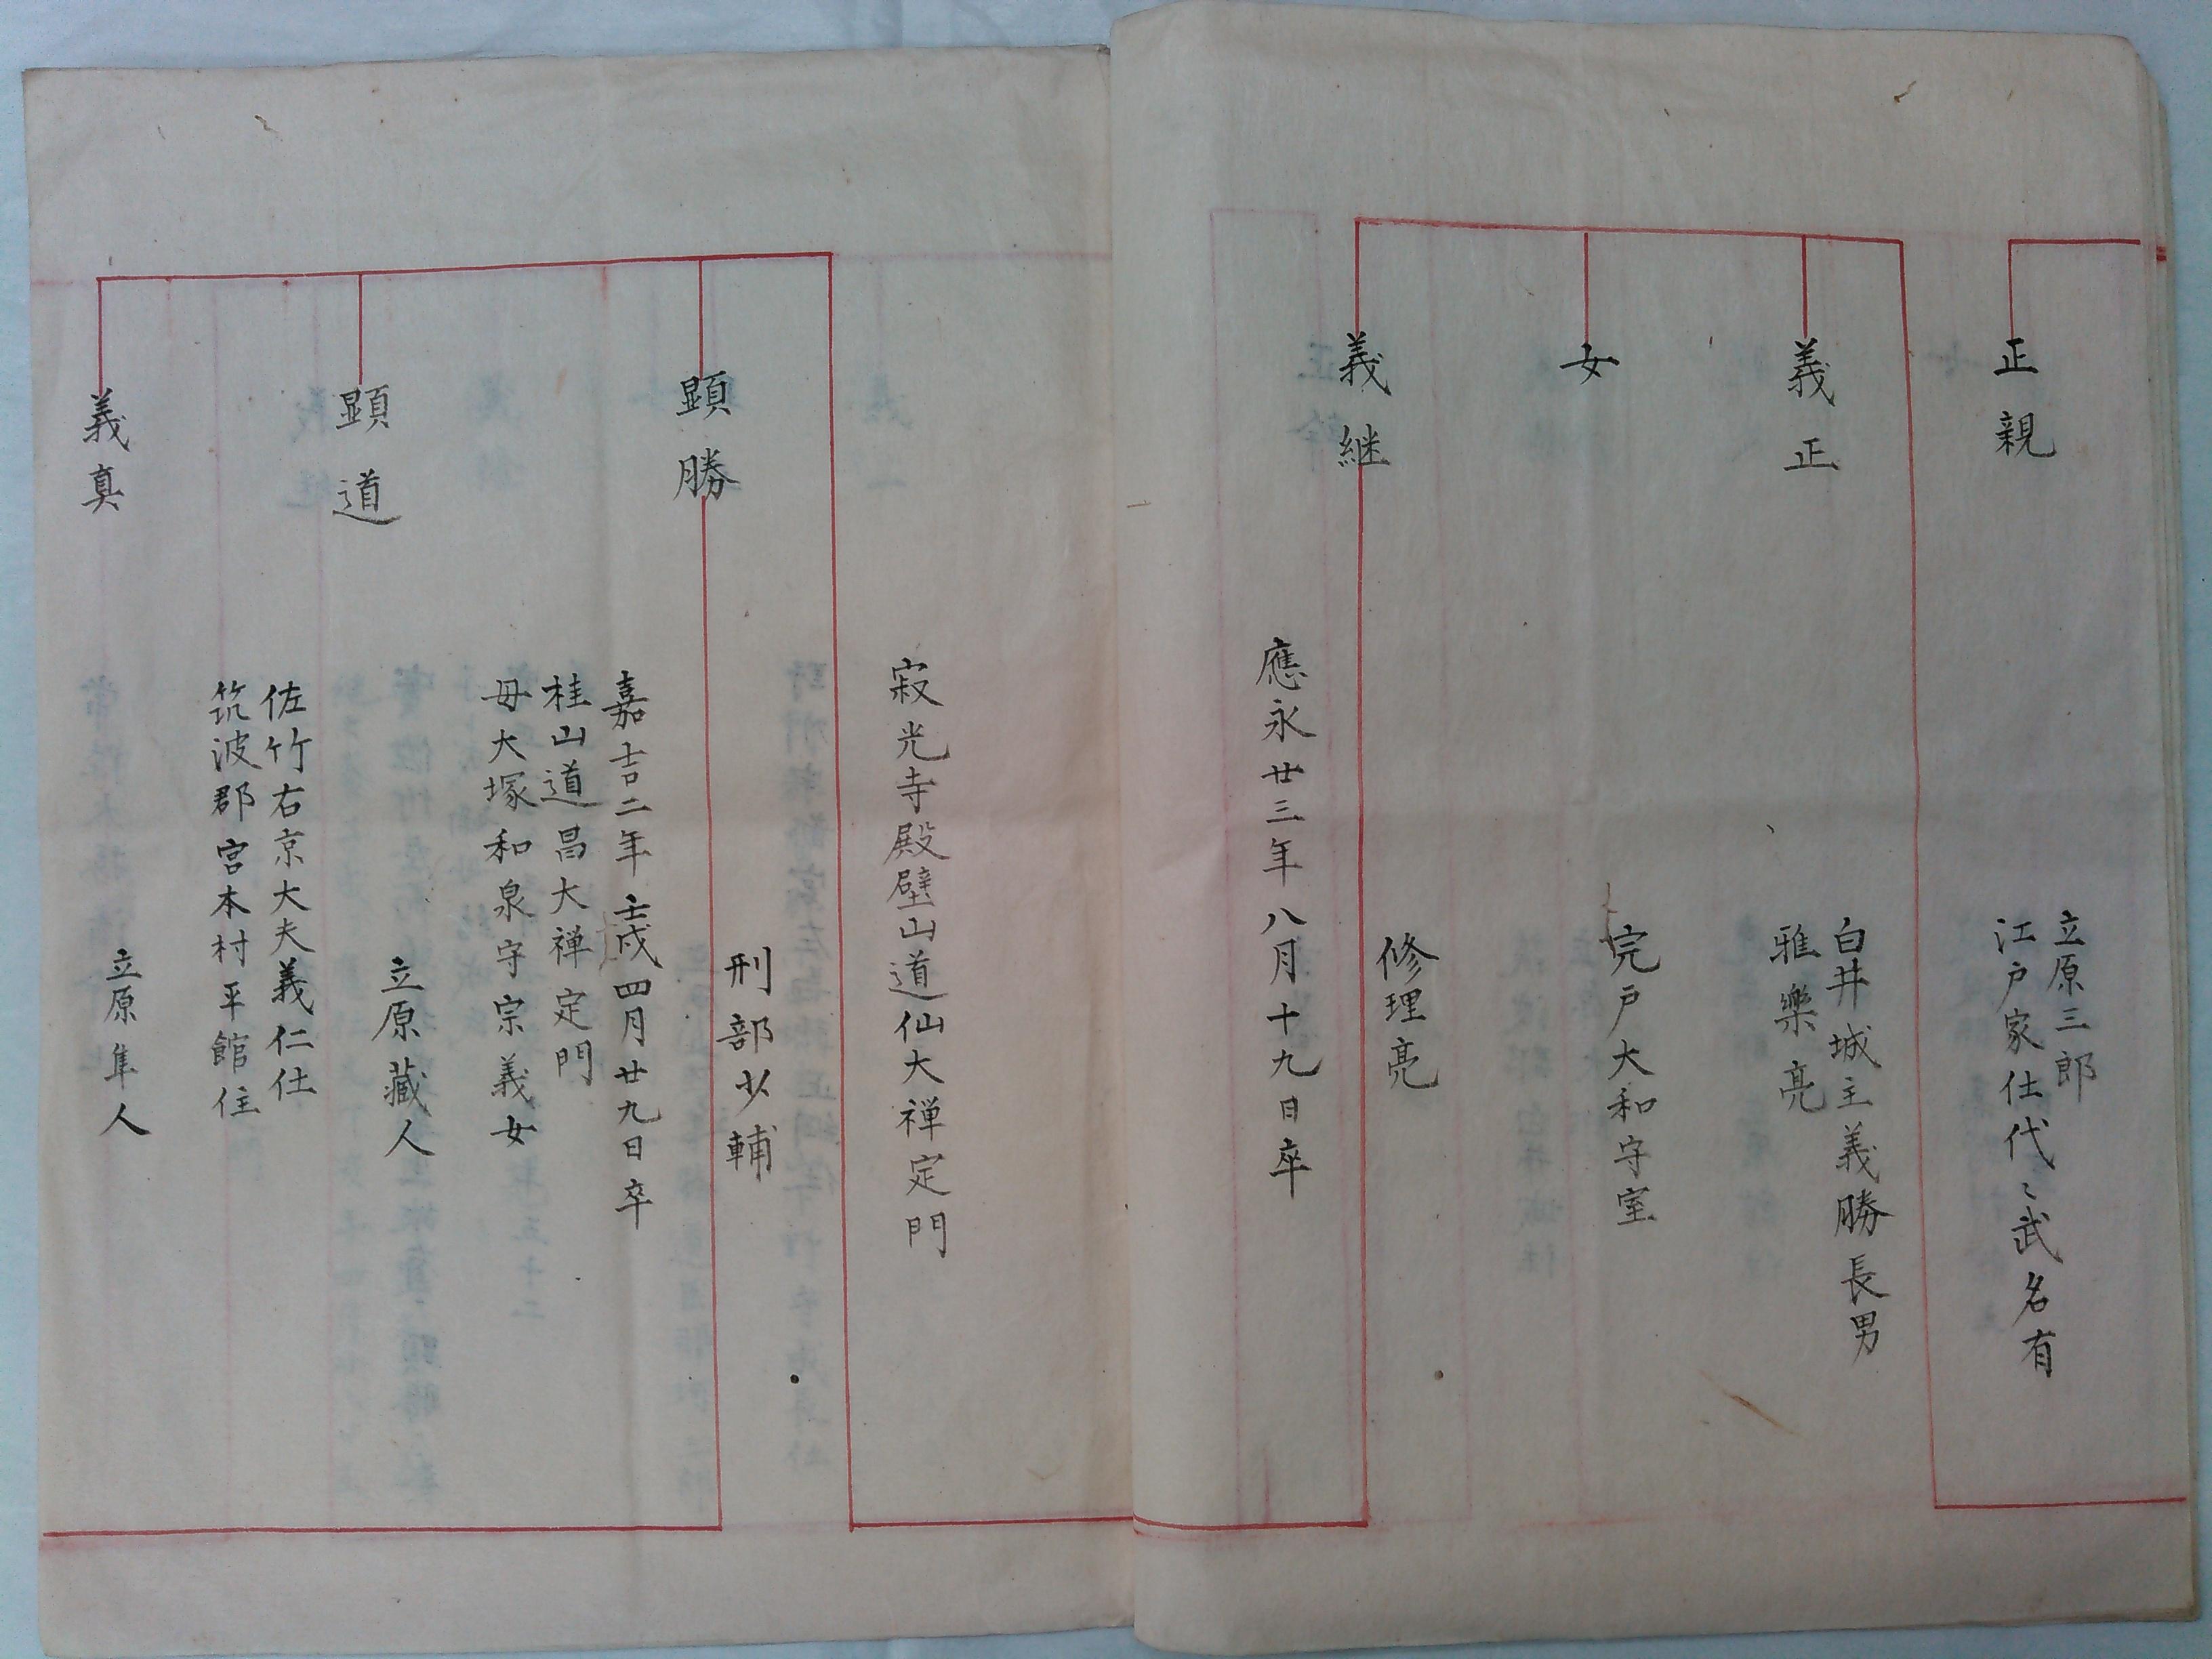 正親
立原三郎
江戸家仕代〻武名有
義正
白井城主義勝長男
雅樂亮
女
完戸大和守室
義継
修理亮
應永廿三年八月十九日卒
寂光寺殿壁山道仙大禅定門
顕勝
刑部少輔
嘉吉二年壬戌四月廿九日卒
桂山道昌大禅定門
母大塚和泉守宗義女
顕道
立原藏人
佐竹右京大夫義仁仕
筑波郡宮本村平館住
義真
立原隼人